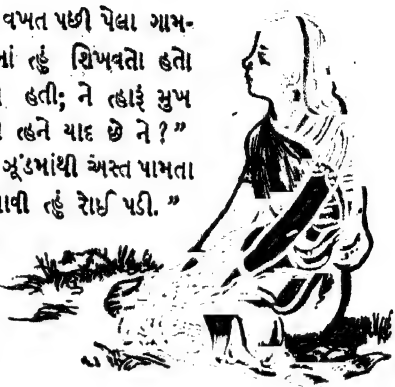 વખત પછી પેલા ગામ-
ત્હું શિખવતો હતો
હતી; ને ત્હારૂં મુખ
ત્હને યાદ છે ને ?”
ઝૂંડમાંથી અસ્ત પામતા
ત્હું રોઈ પડી.”